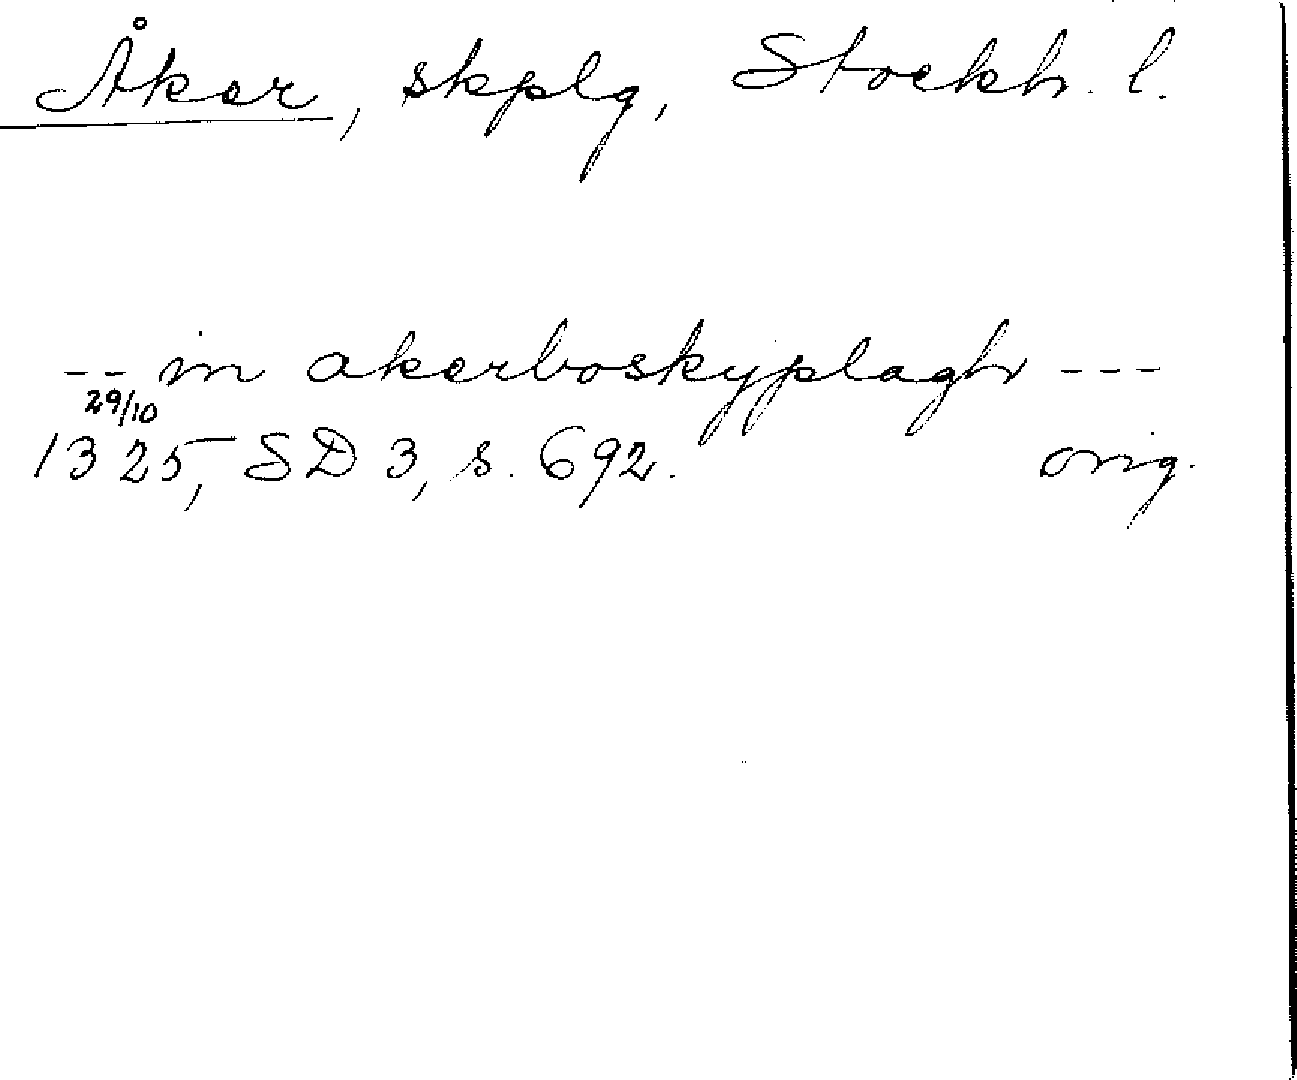 Åker, skplg, Stockh. l.
-- in akerboskyplagh ---
29/10
1325, SD 3, s. 692. orig.